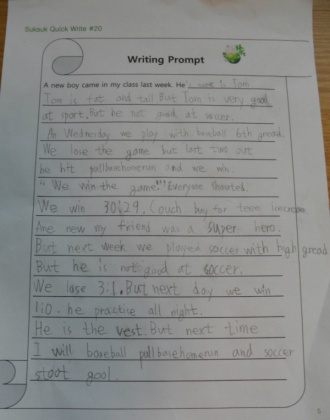 Suksuk Quick Write #20
Writing Prompt
A new boy came in my class last week. He name is Tom
Tom is fat and tall But Tom is very good
at sport, But he not good at soccer.
An Wednesday we play with baseball 6th gread.
We love the game but last two out
he hit pollbasehomerun and we win.
"We win the game!" Everyone shouted.
We win 30:29. Couch buy for teem icecream
Ane new my friend was a super hero.
But next week we played soccer with high gread
But he is not good at soccer.
We lose 3:1. But next day we win
1:0. he practice all night.
He is the vest. But next time
I will baseball pollbasehomerun and soccer
stoot goal.